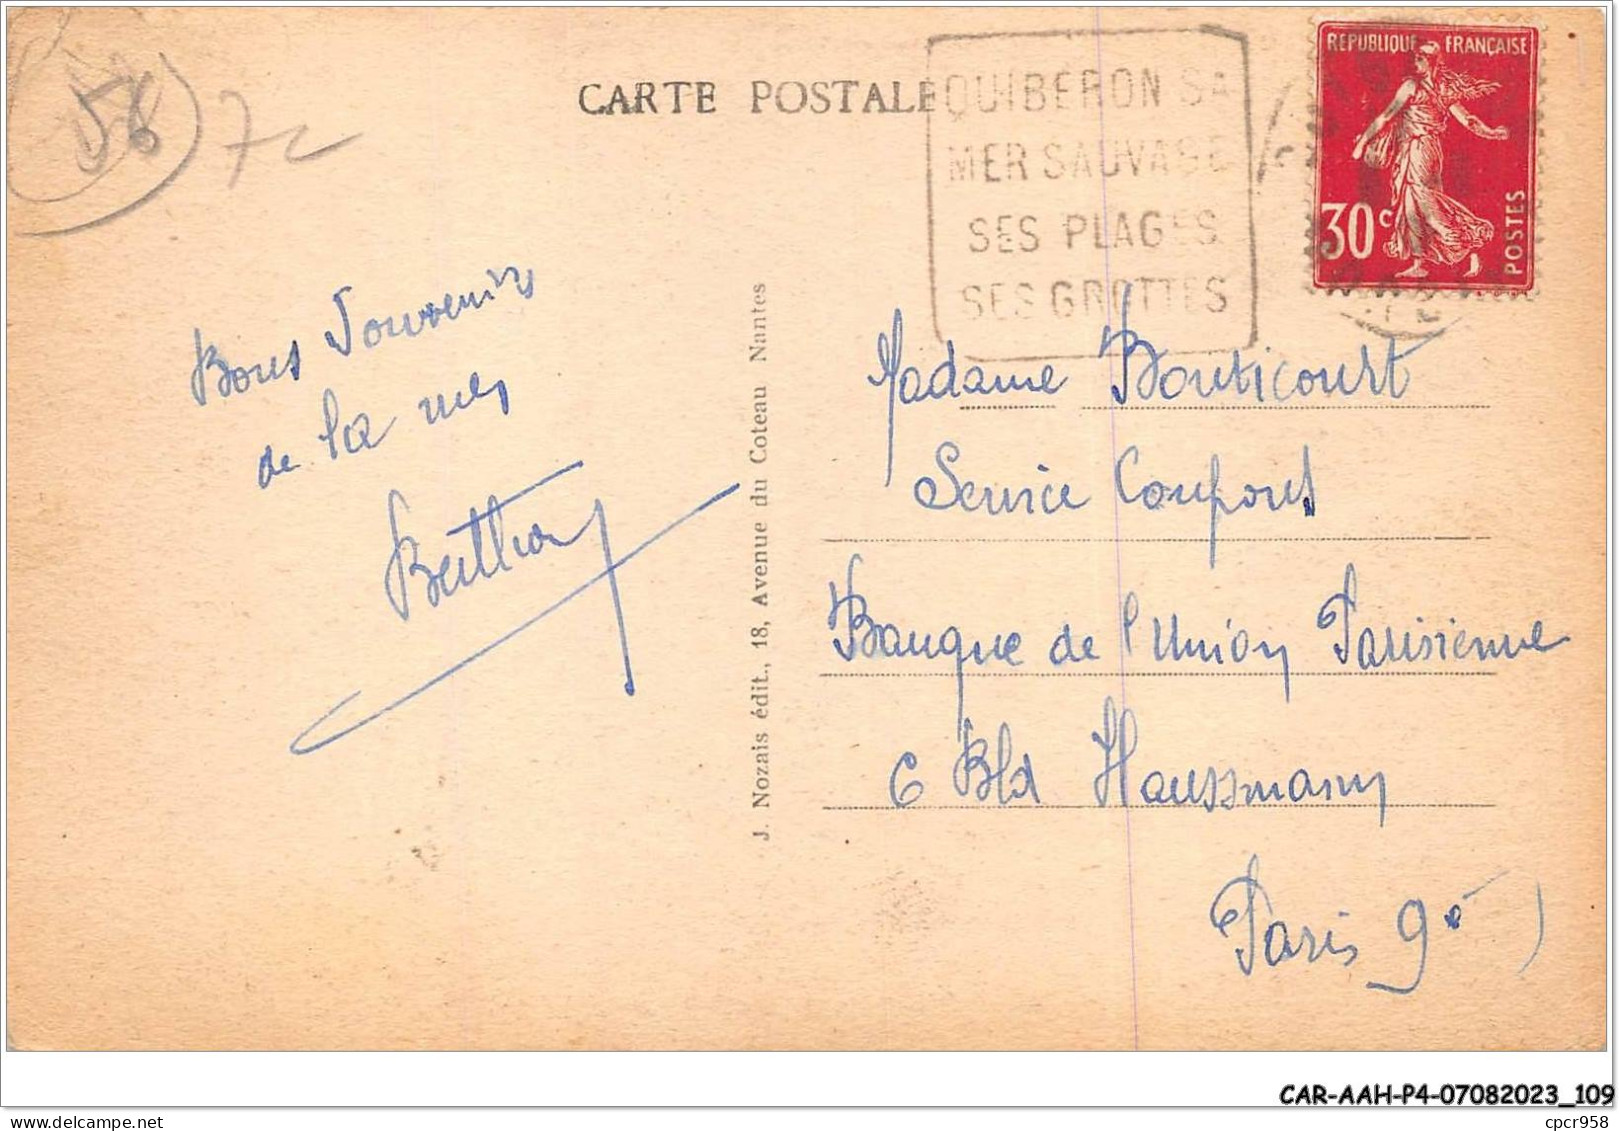 CARTE POSTALE
QUIBERON SA
MER SAUVAGE
SES PLAGES
SES GROTTES
REPUBLIQUE FRANÇAISE
30c
POSTES
56
72
Bons Souvenirs
de la mer
J. Nozais édit., 18, Avenue du Coteau Nantes
Madame Bouticourt
Service Coupons
Banque de l'Union Parisienne
6 Bld Haussmann
Paris 9e
CAR-AAH-P4-07082023_109
cpcr958